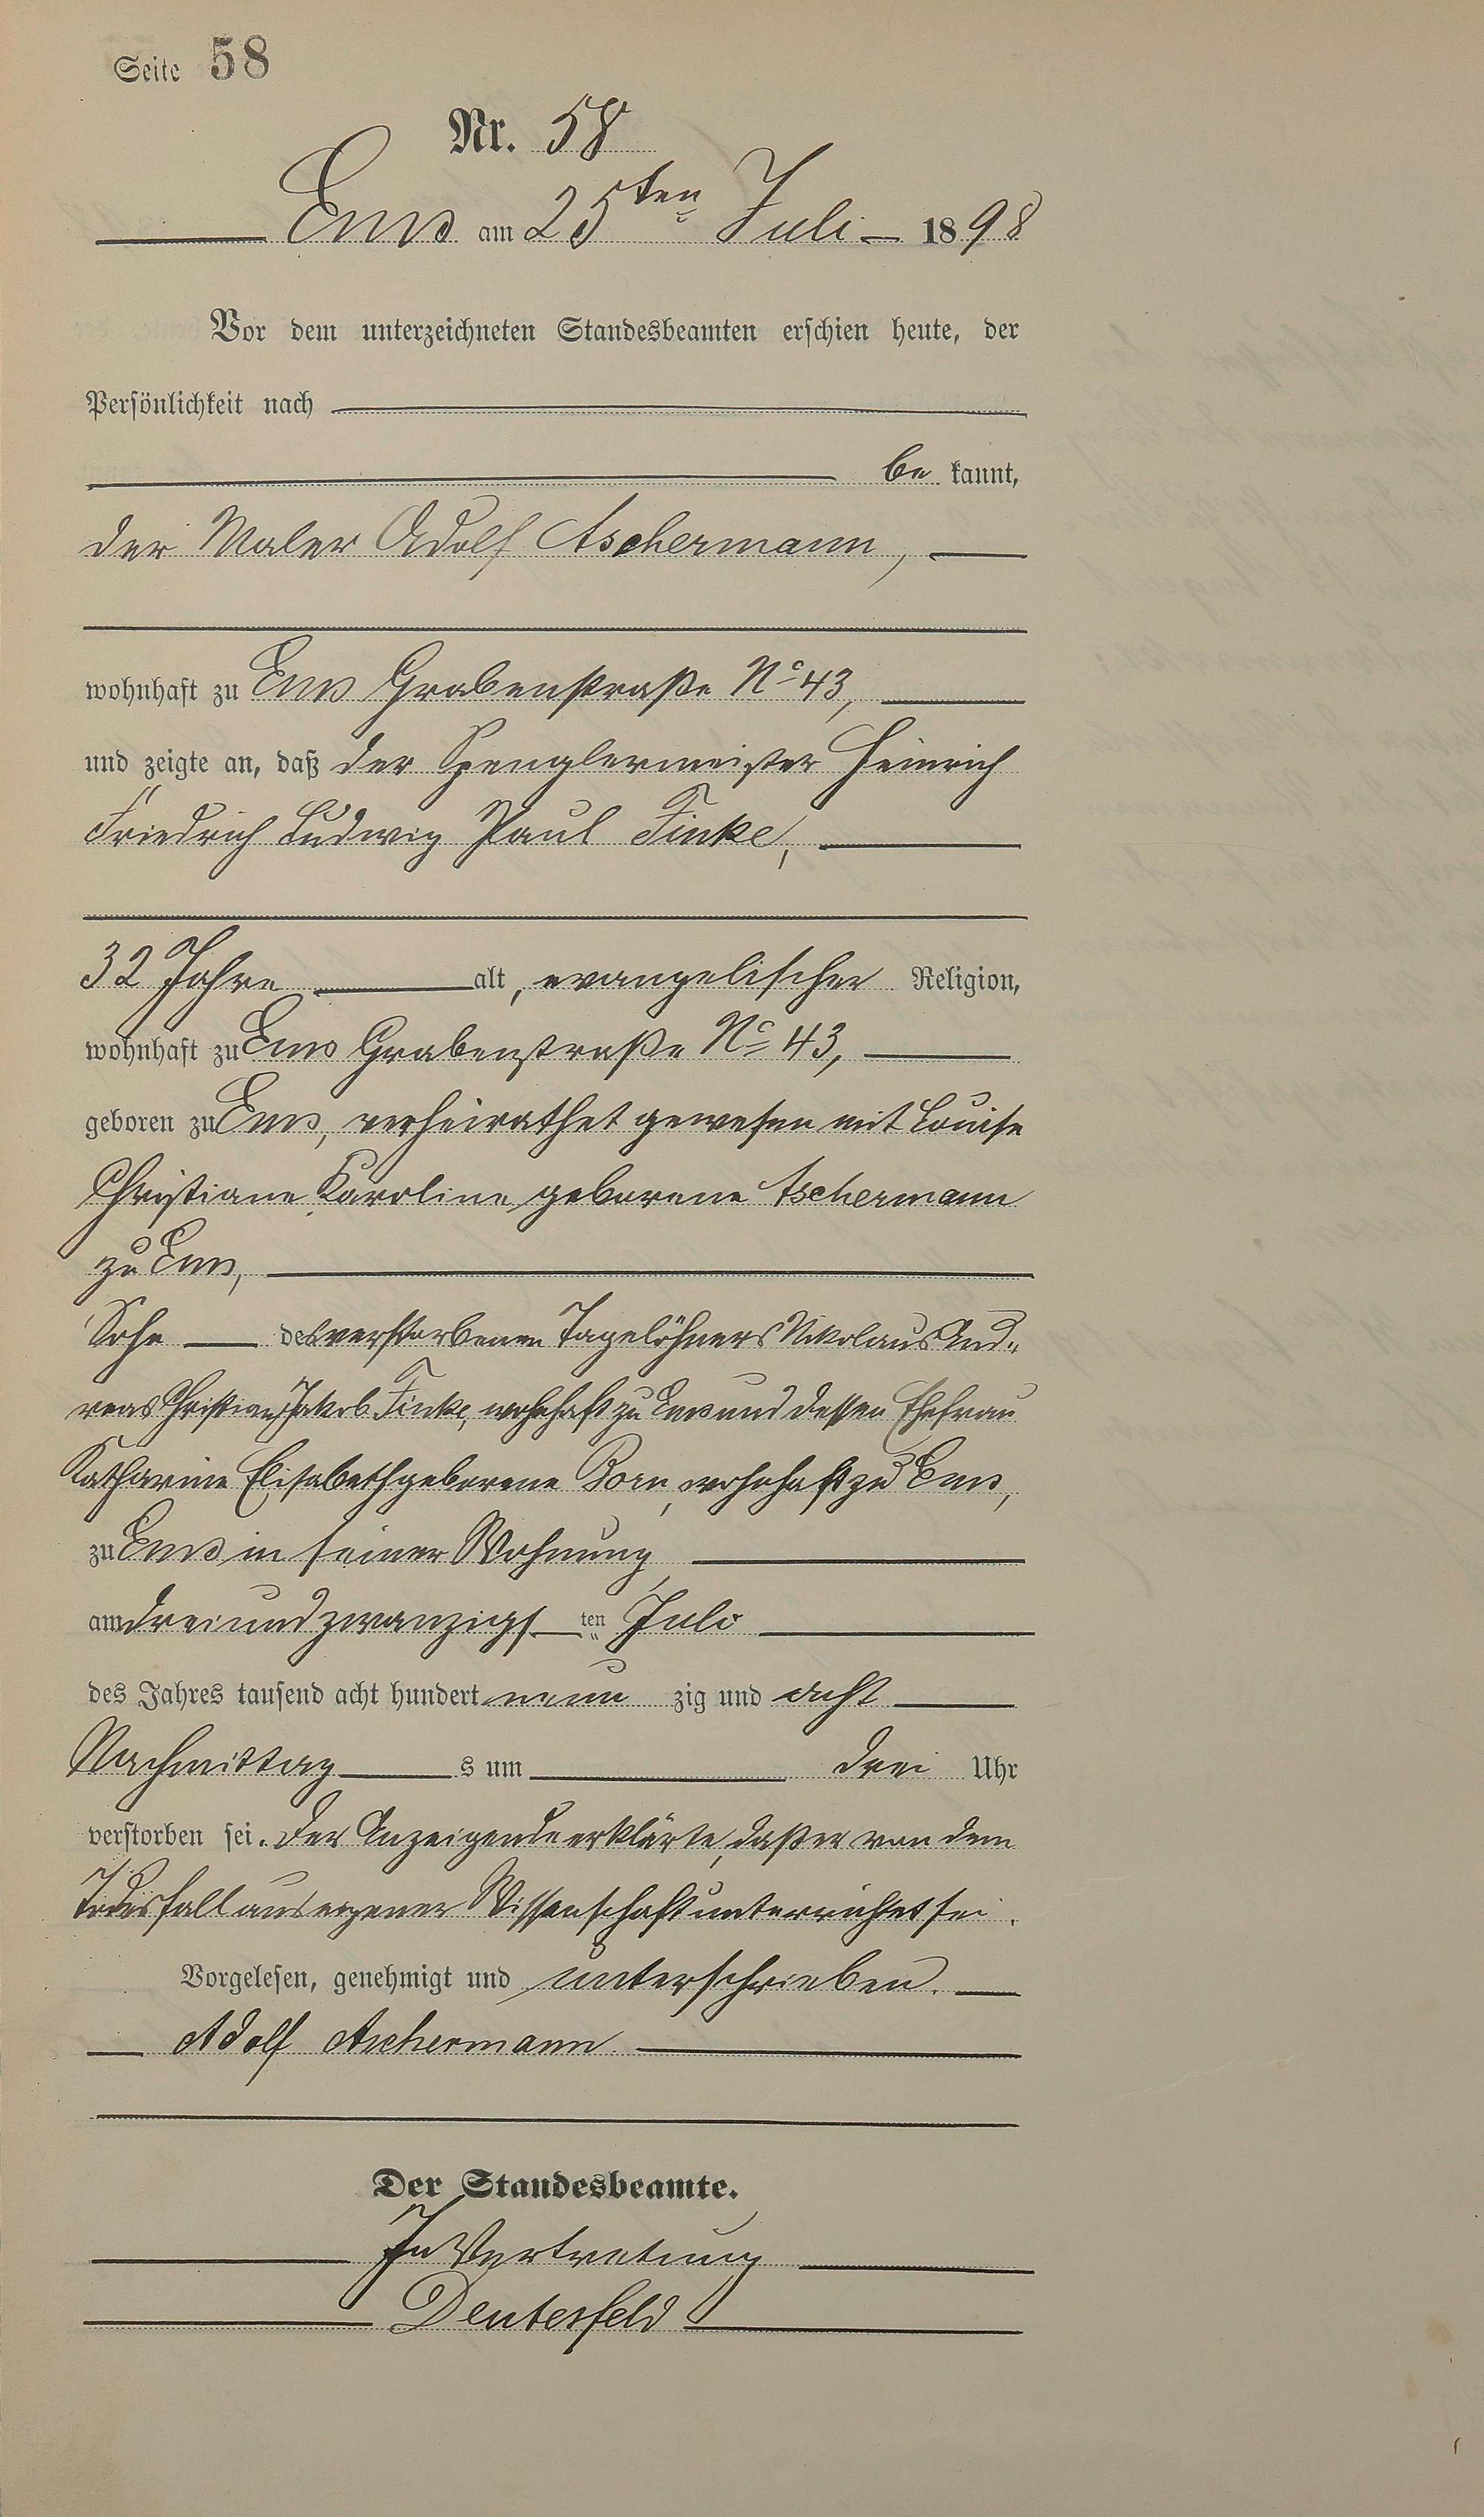 Seite 58
Nr. 58
Ems am 25ten Juli 1898
Vor dem unterzeichneten Standesbeamten erschien heute, der
Persönlichkeit nach
be kannt,
der Maler Adolf Aschermann,
wohnhaft zu Ems Grabenstraße No 43,
und zeigte an, daß der Spenglermeister Heinrich
Friedrich Ludwig Paul Finke,
32 Jahre alt, evangelischer Religion,
wohnhaft zu Ems Grabenstraße No 43,
geboren zu Ems, verheirathet gewesen mit Louise
Christiane Karoline geborene Aschermann
zu Ems,
Sohn des verstorbenen Tagelöhners Nikolaus And„
reas Christian Jakob Finke, wohnhaft zu Ems und dessen Ehefrau
Katharine Elisabeth geborene Born, wohnhaft zu Ems,
zu Ems in seiner Wohnung,
am dreiundzwanzigs ten Juli
des Jahres tausend acht hundert neun zig und acht
Nachmittag s um drei Uhr
verstorben sei. Der Anzeigende erklärte, daß er von dem
Todesfall aus eigener Wissenschaft unterrichtet sei.
Vorgelesen, genehmigt und unterschrieben.
Adolf Aschermann.
Der Standesbeamte.
In Vertretung
Deutesfeld